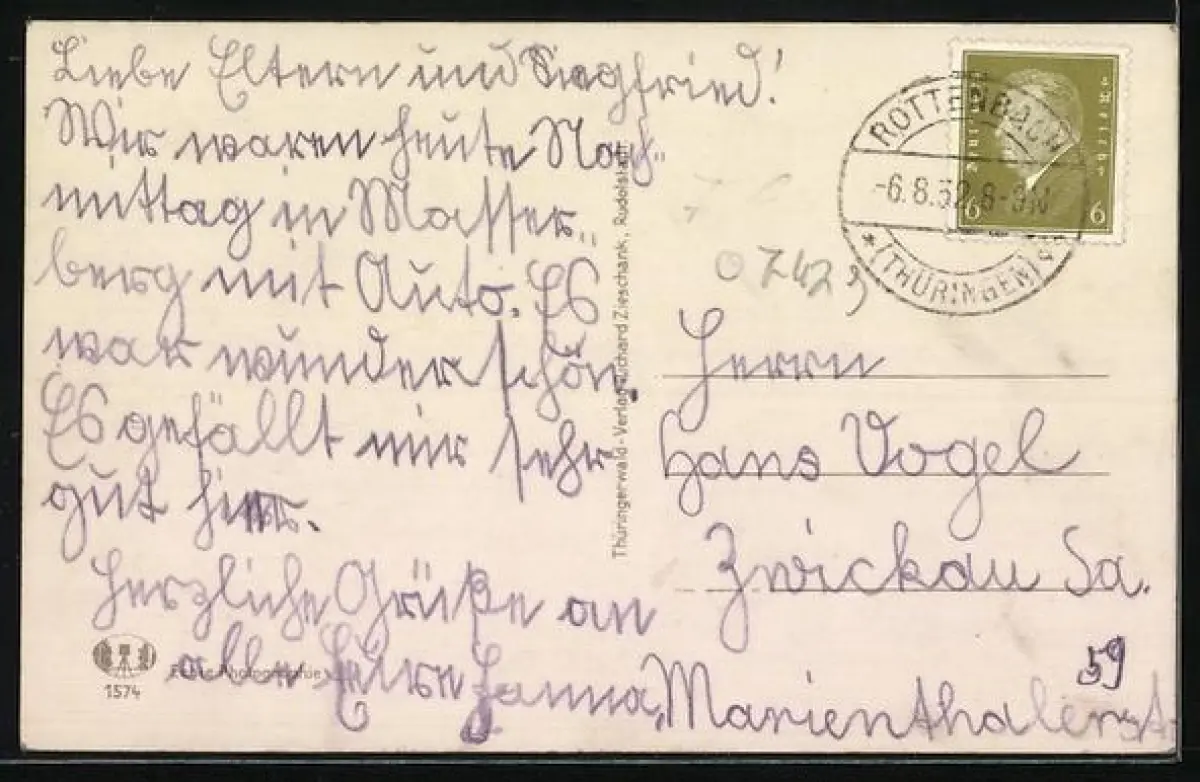 Liebe Eltern und Siegfried!
Wir waren heute Nach-
mittag in Masser-
berg mit Auto. Es
war wunderschön.
Es gefällt mir sehr
gut hier.
Herzliche Grüße an
alle Eure Hanna.
Echte Photographie
1574
Thüringerwald-Verlag Richard Zieschank, Rudolstadt
ROTTENBACH
-6.8.32.8-9N
*(THÜRINGEN)
6 6
Herrn
Hans Vogel
Zwickau Sa.
59
Marienthalerst.